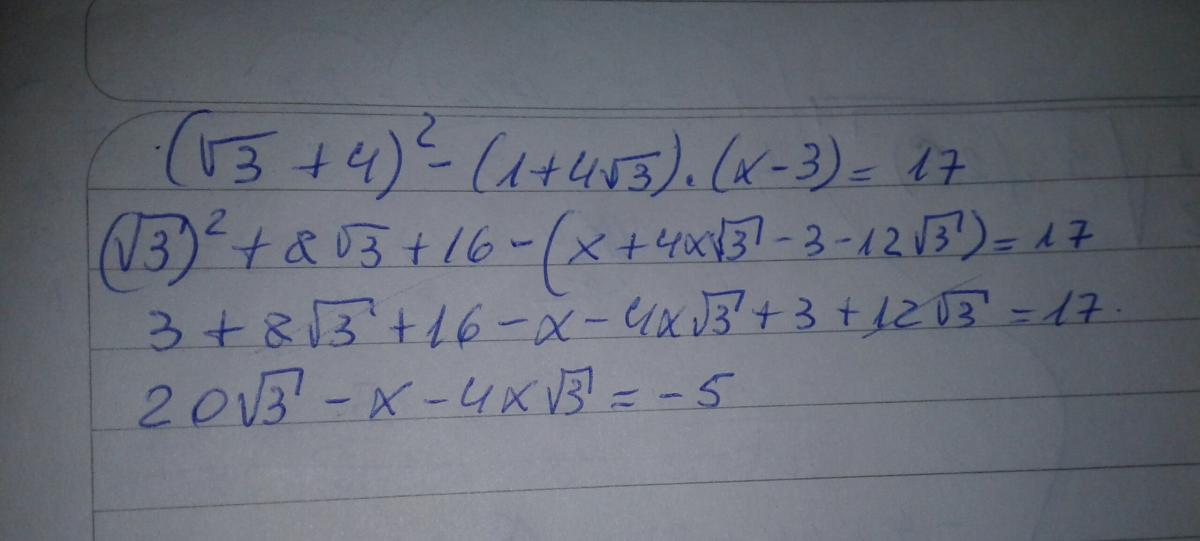 (√3 + 4)² - (1+4√3) . (x-3) = 17
(√3)² + 8√3 + 16 - (x + 4x√3 - 3 - 12√3) = 17
3 + 8√3 + 16 - x - 4x√3 + 3 + 12√3 = 17.
20√3 - x - 4x√3 = - 5